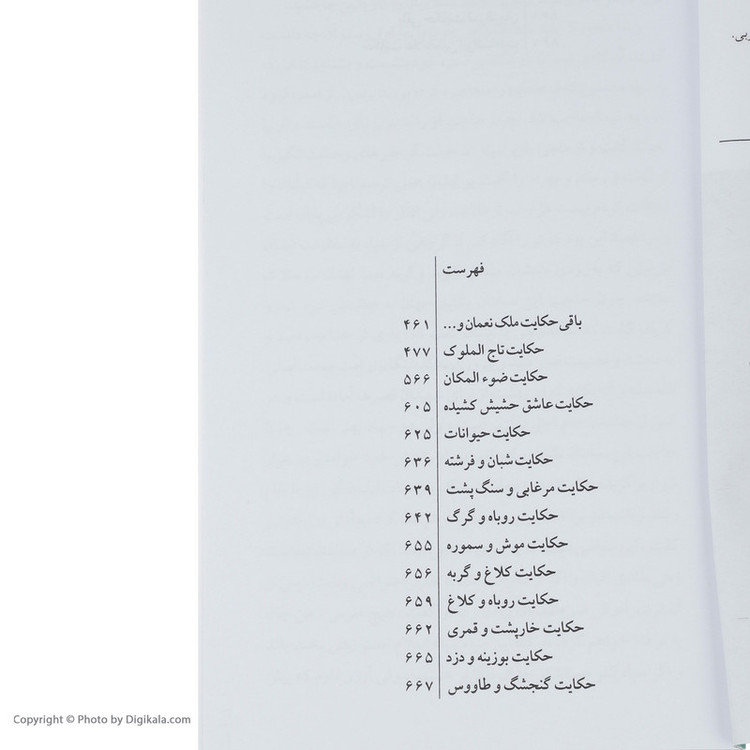 ربی.
فهرست
باقی حکایت ملک نعمان و... ۴۶۱
حکایت تاج الملوک ۴۷۷
حکایت ضوء المکان ۵۶۶
حکایت عاشق حشیش کشیده ۶۰۵
حکایت حیوانات ۶۲۵
حکایت شبان و فرشته ۶۳۶
حکایت مرغابی و سنگ پشت ۶۳۹
حکایت روباه و گرگ ۶۴۲
حکایت موش و سموره ۶۵۵
حکایت کلاغ و گربه ۶۵۶
حکایت روباه و کلاغ ۶۵۹
حکایت خارپشت و قمری ۶۶۲
حکایت بوزینه و دزد ۶۶۵
حکایت گنجشگ و طاووس ۶۶۷
Copyright © Photo by Digikala.com